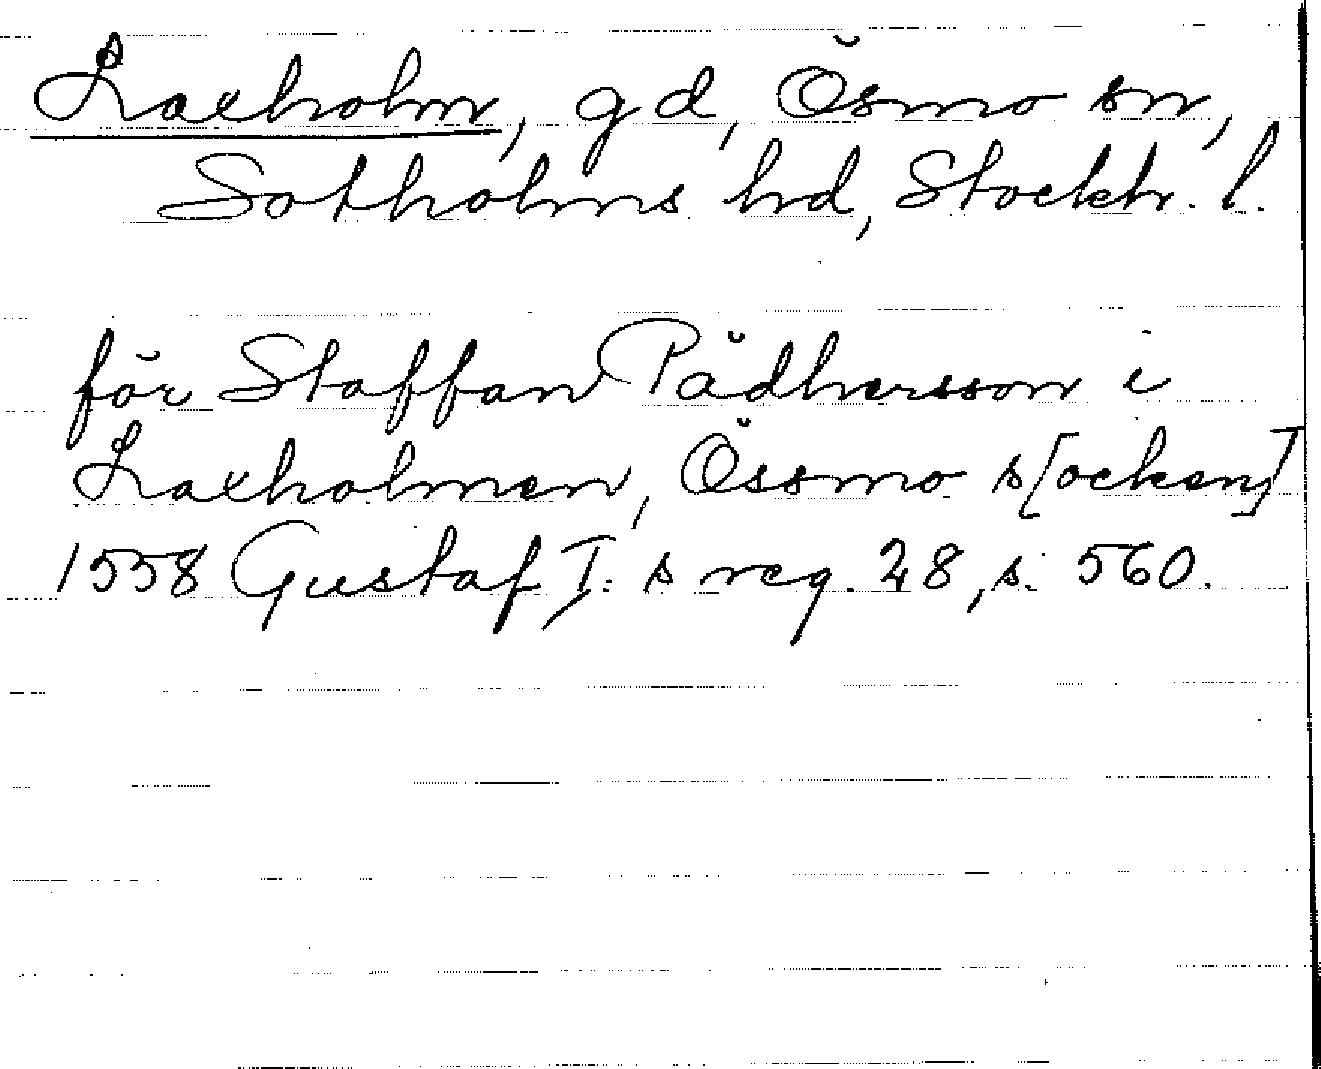 Laxholm, gd, Ösmo sn,
Sotholms hd, Stockh. l.
för Staffan Pädhersson i
Laxholmen, Össmo s[ocken]
1558 Gustaf I:s reg. 28, s. 560.